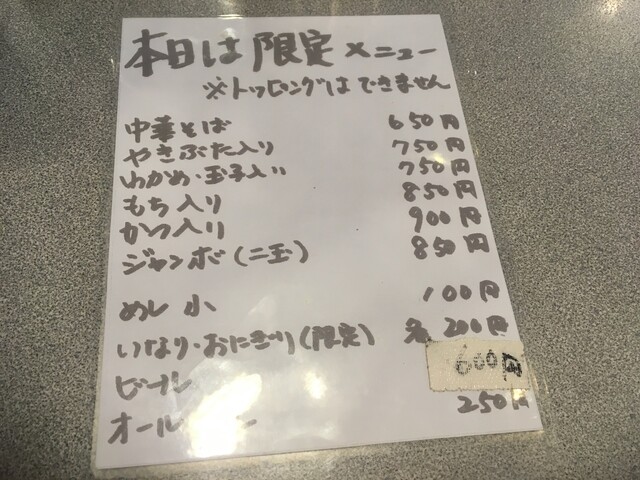 本日は限定メニュー
※トッピングはできません
中華そば 650円
やきぶた入り 750円
わかめ・玉子入り 750円
もち入り 850円
かつ入り 900円
ジャンボ(二玉) 850円
めし 小 100円
いなり・おにぎり(限定) 各200円
ビール 600円
オール ー 250円